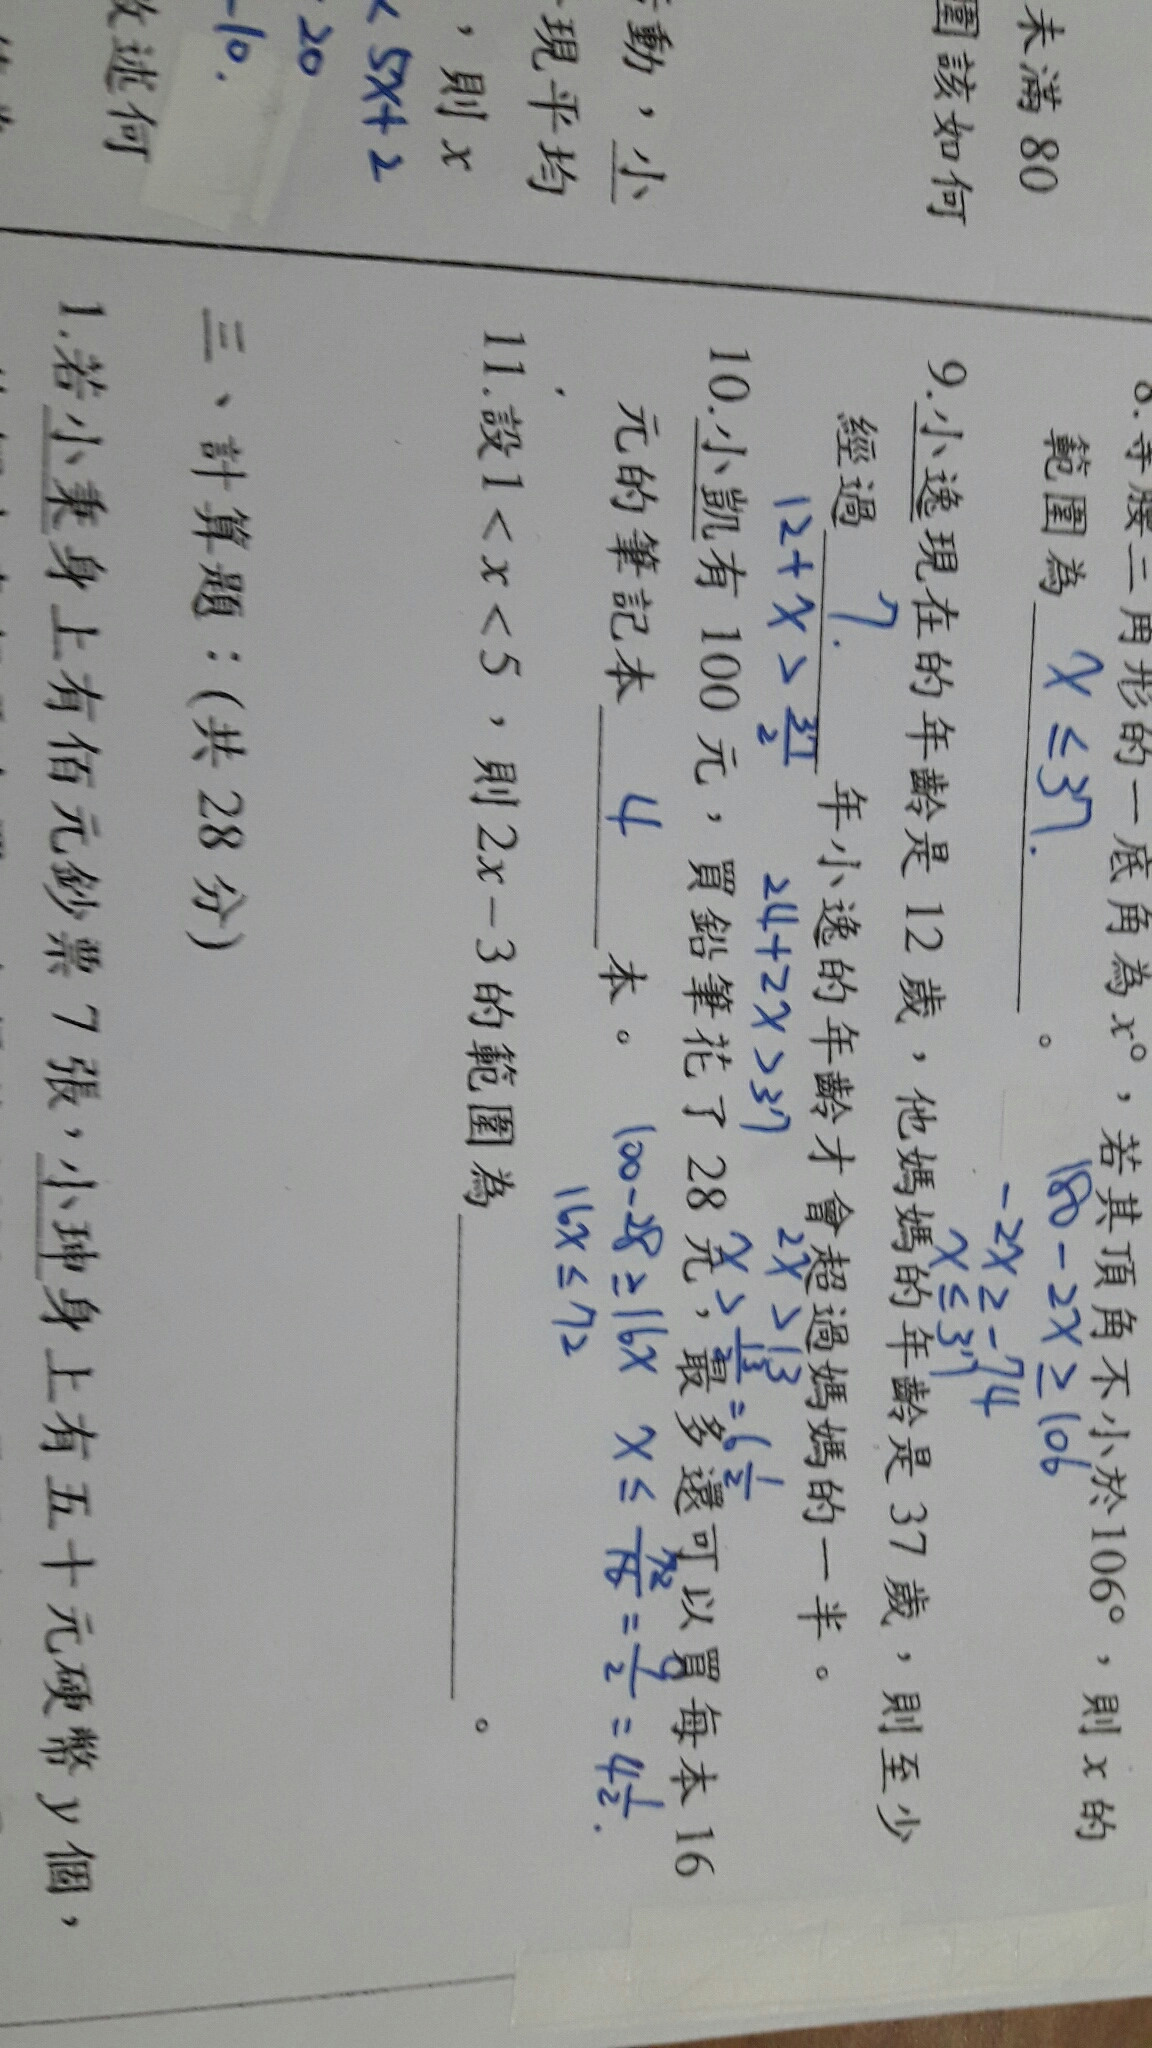 未滿 80
圍該如何
動，小
現平均
，則 x
< 5x+2
20
-10.
敘述何
8.等腰三角形的一底角為 x°，若其頂角不小於106°，則 x 的
範圍為 x ≤ 37. 。
180-2x ≥ 106
-2x ≥ -74
x ≤ 37
9.小逸現在的年齡是 12 歲，他媽媽的年齡是 37 歲，則至少
經過 7. 年小逸的年齡才會超過媽媽的一半。
12+x > 37/2 24+2x > 37 2x > 13
x > 13/2 = 6 1/2
10.小凱有 100 元，買鉛筆花了 28 元，最多還可以買每本 16
元的筆記本 4 本。
100-28 ≥ 16x x ≤ 72/16 = 9/2 = 4 1/2.
16x ≤ 72
11.設1 < x < 5，則 2x-3 的範圍為 。
三、計算題：(共 28 分)
1.若小秉身上有佰元鈔票 7 張，小珅身上有五十元硬幣 y 個，